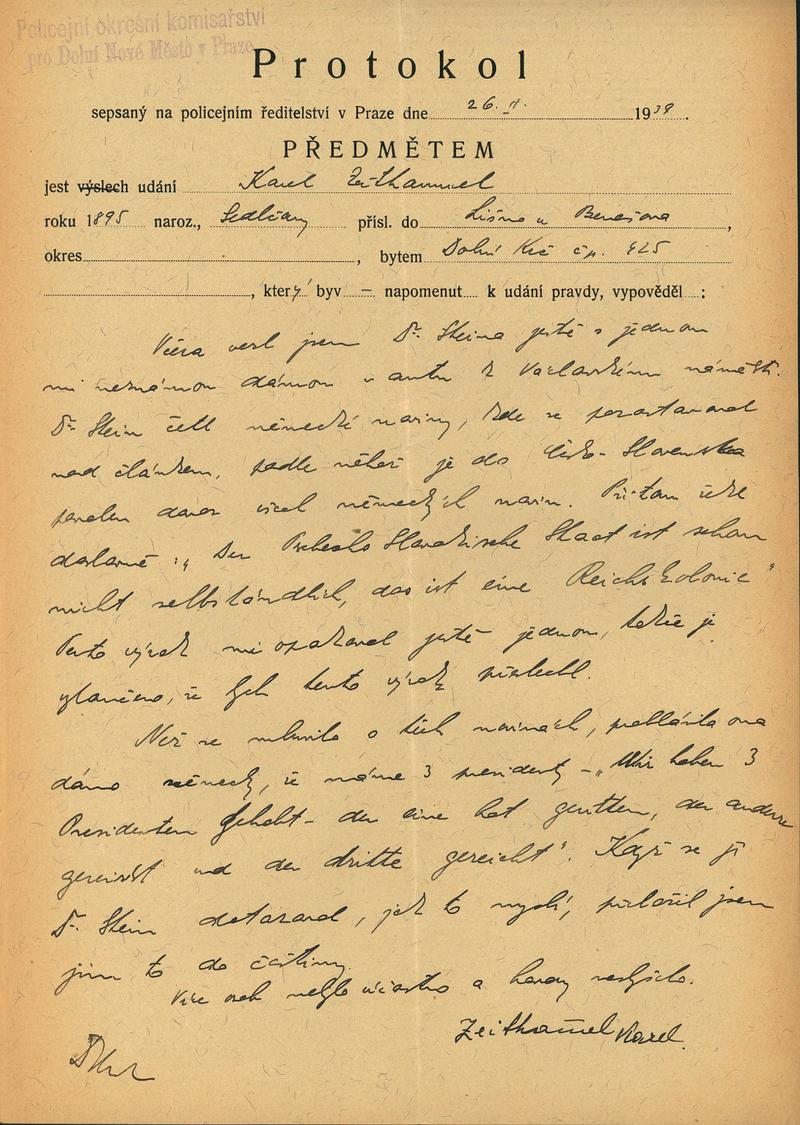 Policejní okresní komisařství
pro Dolní Nové Město v Praze
Protokol
sepsaný na policejním ředitelství v Praze dne 26. II. 1939.
PŘEDMĚTEM
jest výslech udání Karel Zeithammel
roku 1895 naroz., Sedlčany přísl. do Líšno u Benešova,
okres , bytem Dolní Krč čp. 425
, který byv – napomenut k udání pravdy, vypověděl :
Včera vezl jsem Dr. Steina ještě s jednou
mi neznámou dámou v autu k Václavskému náměstí.
Dr. Stein četl německé noviny, kde se pozastavoval
nad článkem, podle něhož je do Česko-Slovenska
povolen dovoz všech německých novin. Při tom řekl
doslovně: „Der Tschecho Slovakische Staat ist schon
nicht selbständlich, das ist eine Reichskolonie“
Tento výrok mi opakoval ještě jednou, takže je
vyloučeno, že bych tento výrok přeslechl.
Než se mluvilo o těch novinách, prohlásila ona
dáma německy, že máme 3 presidenty – „Wir haben 3
Presidenten gehabt – der eine hat geritten, der andere
gereist und der dritte gereicht“. Když se jí
Dr. Stein dotazoval, jak to myslí, přeložil jsem
jim to do češtiny.
Více osob nebylo účastno a hovory neslyšelo.
Zeithammel Karel.